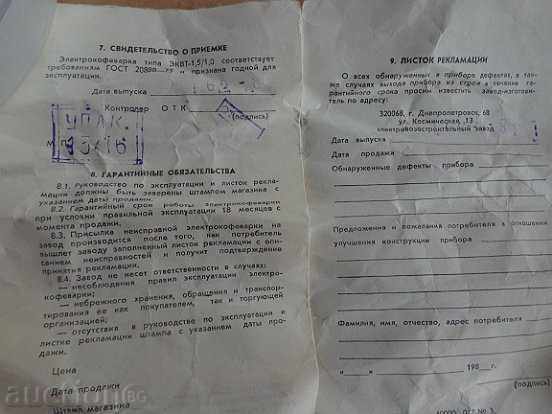 7. СВИДЕТЕЛЬСТВО О ПРИЕМКЕ
Электрокофеварка типа ЭКВТ-1,5/1,0 соответствует
требованиям ГОСТ и признана годной для
эксплуатации.
Дата выпуска
Контролер ОТК
(подпись)
УПАК.
М.П.
8. ГАРАНТИЙНЫЕ ОБЯЗАТЕЛЬСТВА
8.1. Руководство по эксплуатации и листок рекла-
мации должны быть заверены штампом магазина с
указанием даты продажи.
8.2. Гарантийный срок работы электрокофеварки
при условии правильной эксплуатации 18 месяцев с
момента продажи.
8.3. Присылка неисправной электрокофеварки на
завод производится после того, как потребитель
вышлет заводу заполненный листок рекламации с опи-
санием неисправностей и получит подтверждение
принятия рекламации.
8.4. Завод не несет ответственности в случаях:
— несоблюдения правил эксплуатации электро-
кофеварки;
— небрежного хранения, обращения и транспор-
тирования ее как покупателем, так и торгующей
организацией;
— отсутствия в руководстве по эксплуатации и
листке рекламации штампа с указанием даты про-
дажи.
Цена
Дата продажи
Штамп магазина
9. ЛИСТОК РЕКЛАМАЦИИ
О всех обнаруженных в приборе дефектах, а так-
же случаях выхода прибора из строя в течение га-
рантийного срока просим известить завод-изготови-
тель по адресу:
320068, г. Днепропетровск, 68
ул. Космическая, 13
электровозостроительный завод
Дата выпуска
Дата продажи
Обнаруженные дефекты прибора
Предложения и пожелания потребителя в отношении
улучшения конструкции прибора
Фамилия, имя, отчество, адрес потребителя
198 г.
(подпись)